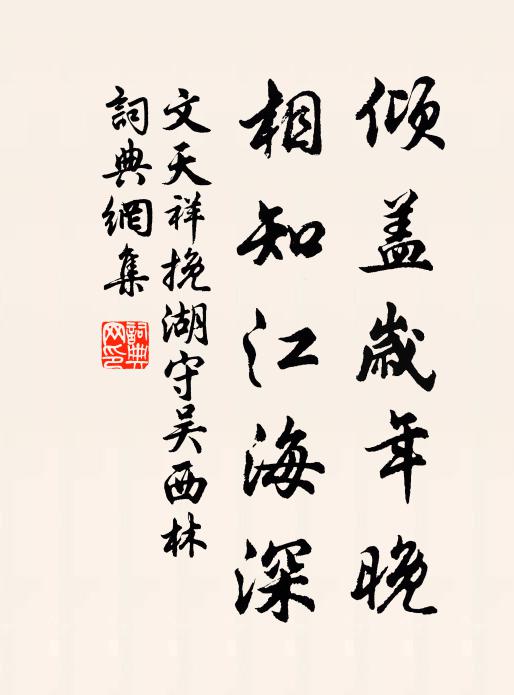 傾盖歲年晚
相知江海深
文天祥挽湖守吴西林
詞典網集
詞典網印